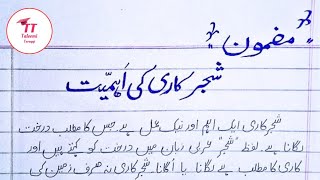 TT
Taleemi
”مضمون“
شجرکاری کی اہمیّت
شجرکاری ایک اہم اور نیک عمل ہے جس کا مطلب درخت
لگانا ہے لفظ "شجر" عربی زبان میں درخت کو کہتے ہیں اور
کاری کا مطلب ہے لگانا یا اُگانا شجرکاری نہ صرف زمین کی